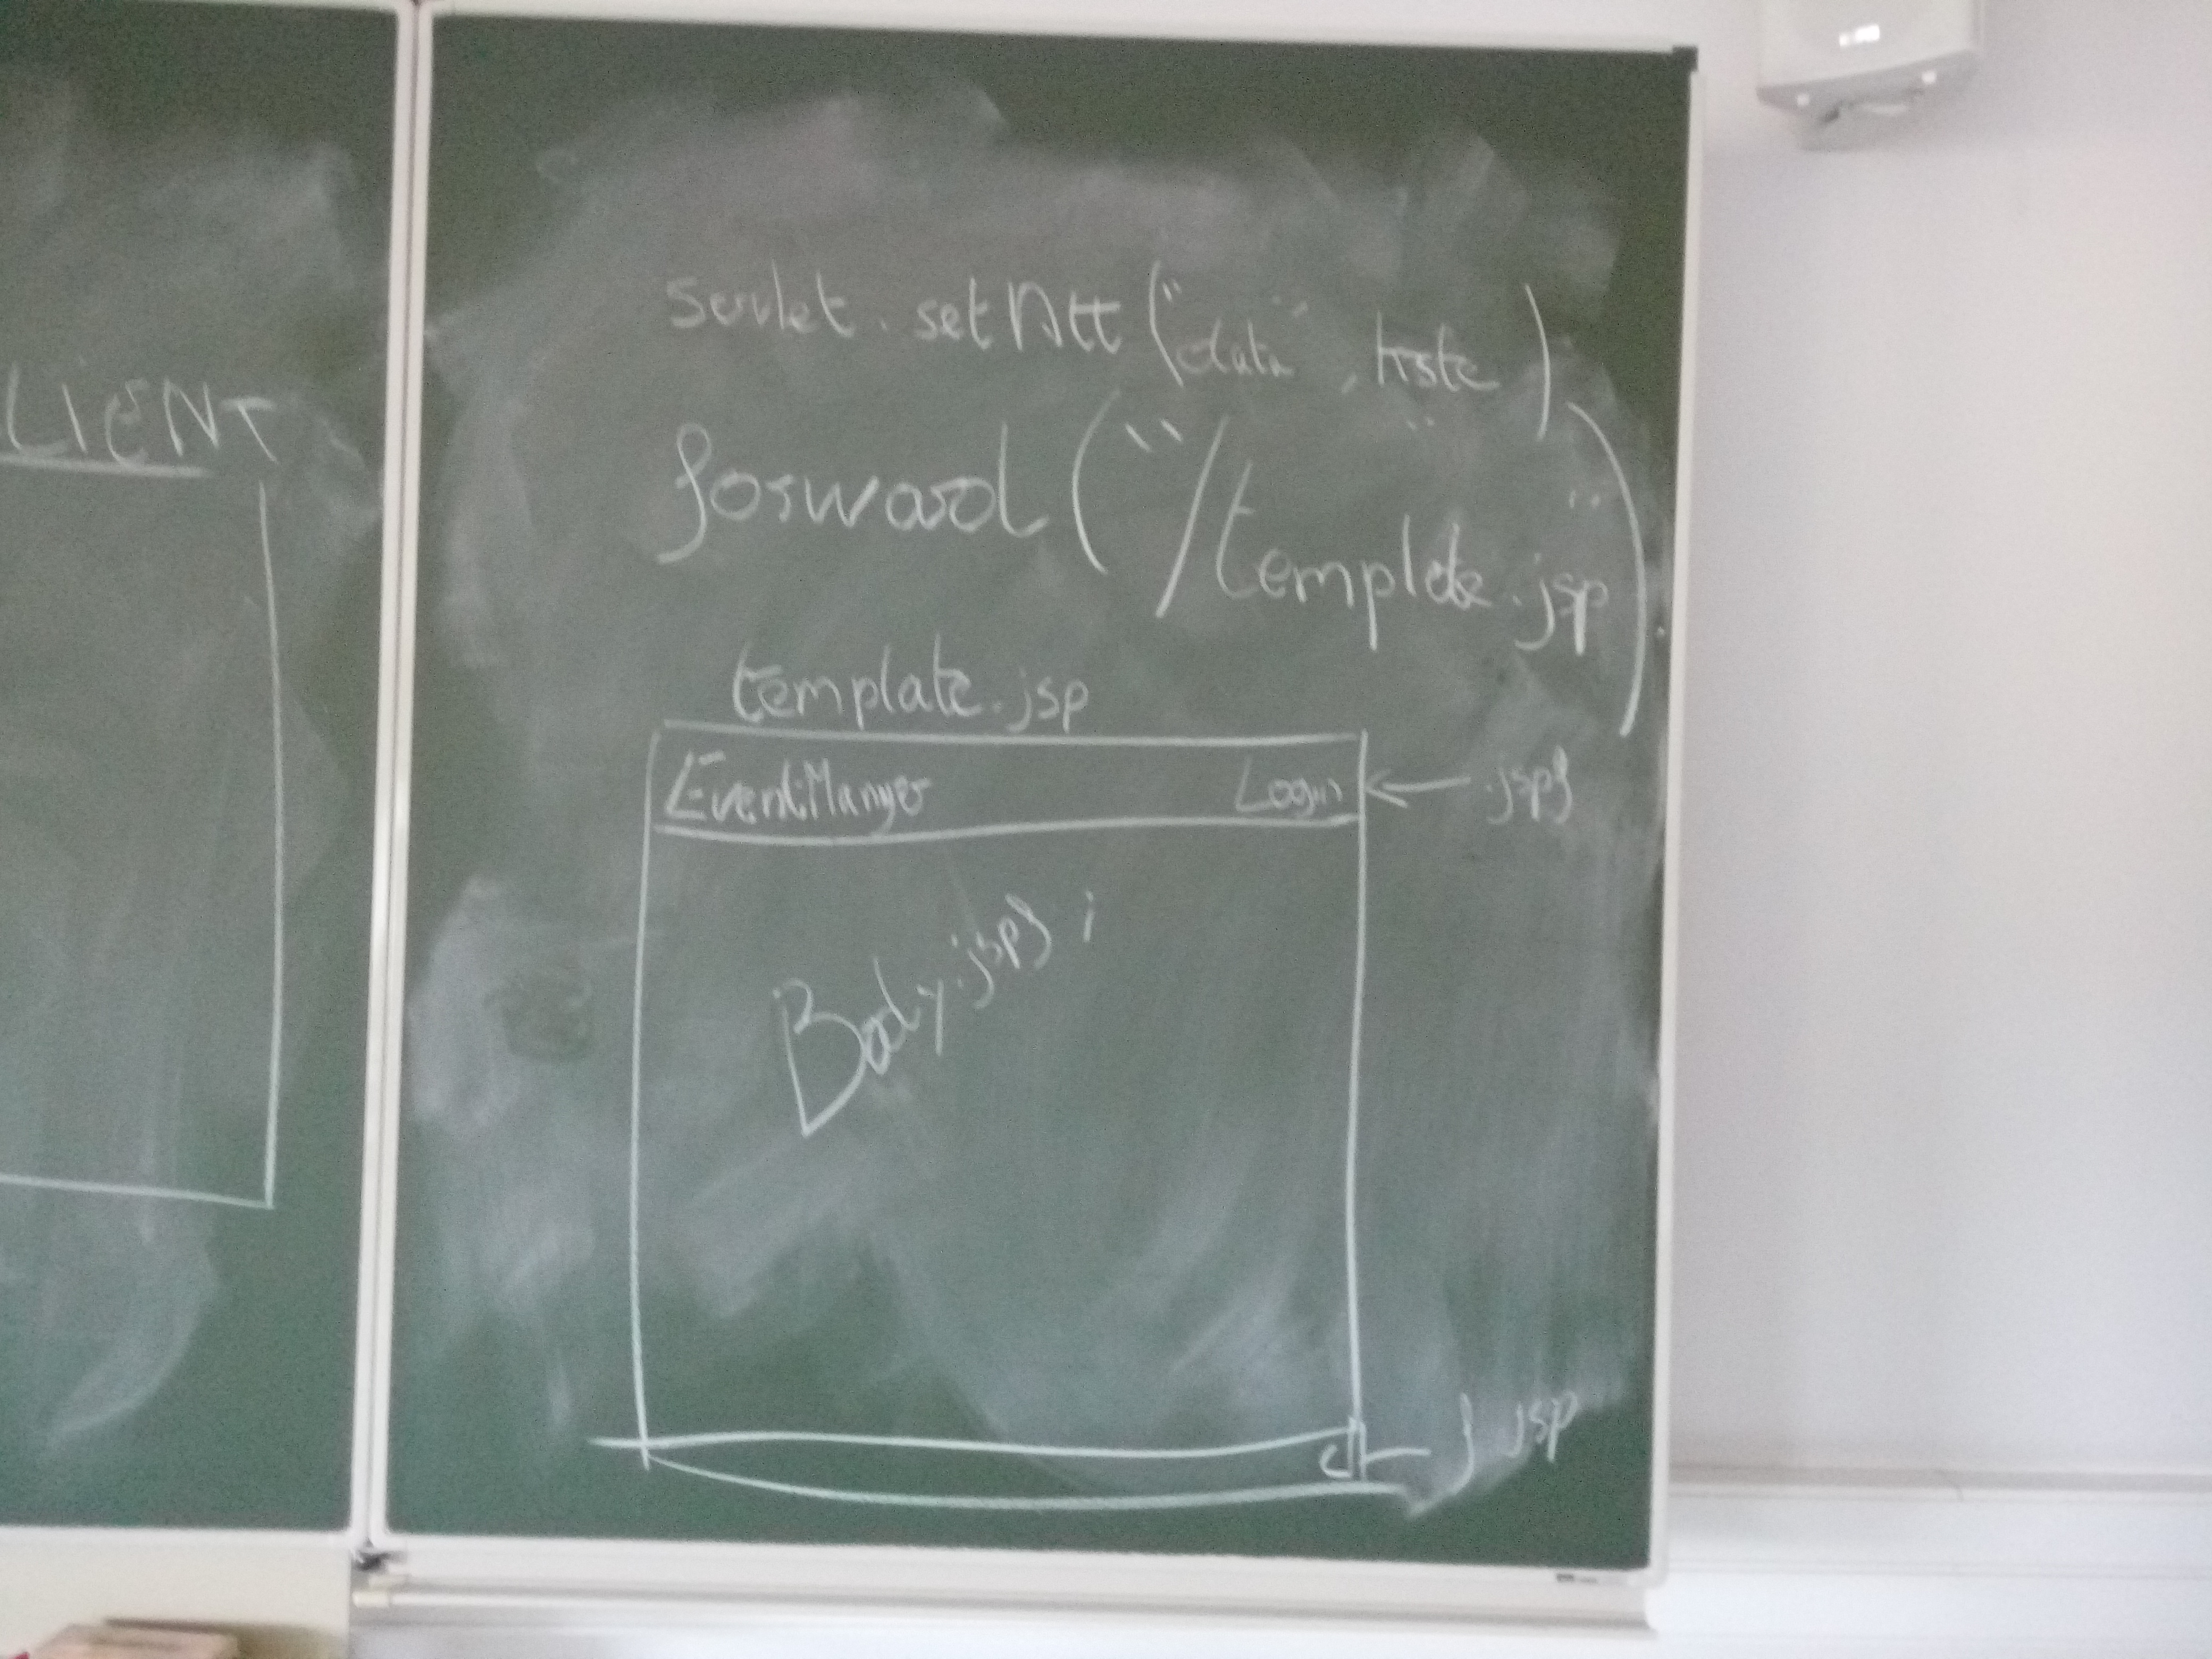 LIENT
servlet.setAtt("data", liste)
forward("/template.jsp")
template.jsp
EventManger Login
.jspf
Body.jspf;
jsp